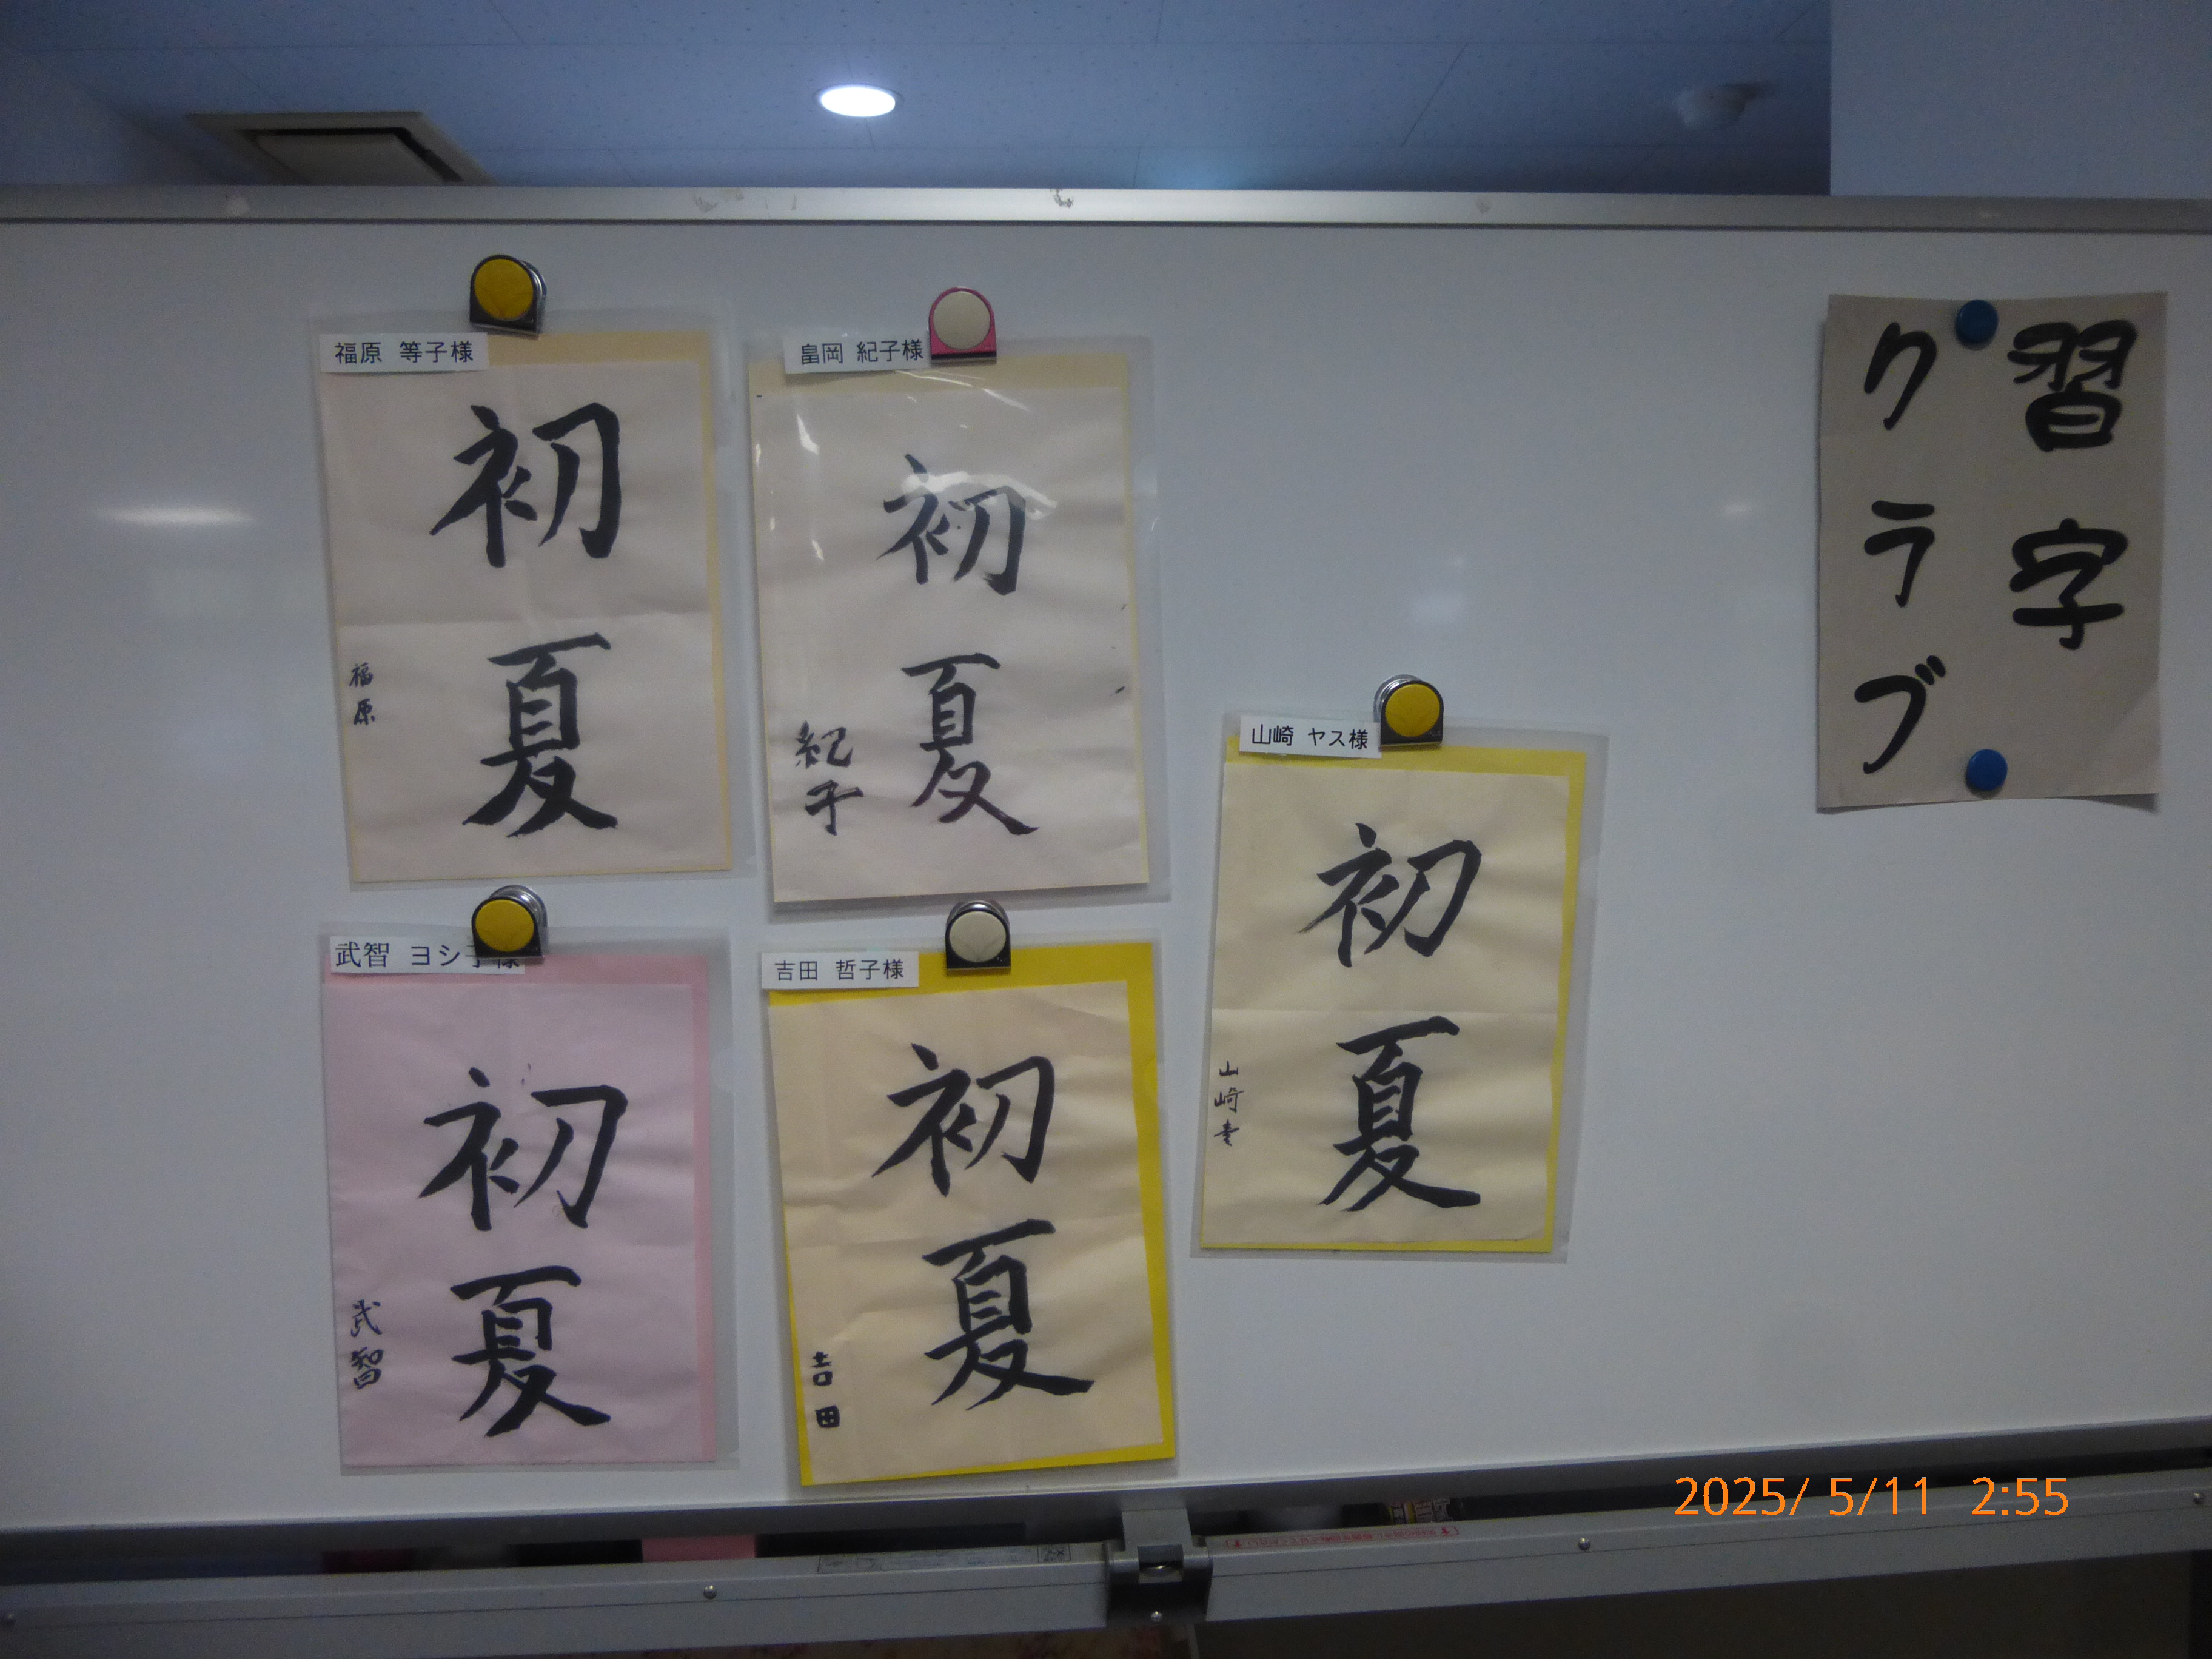 習字
クラブ
福原 等子様
初夏
福原
畠岡 紀子様
初夏
紀子
山崎 ヤス様
初夏
山崎
武智 ヨシ子様
初夏
武智
吉田 哲子様
初夏
吉田
2025/ 5/11 2:55